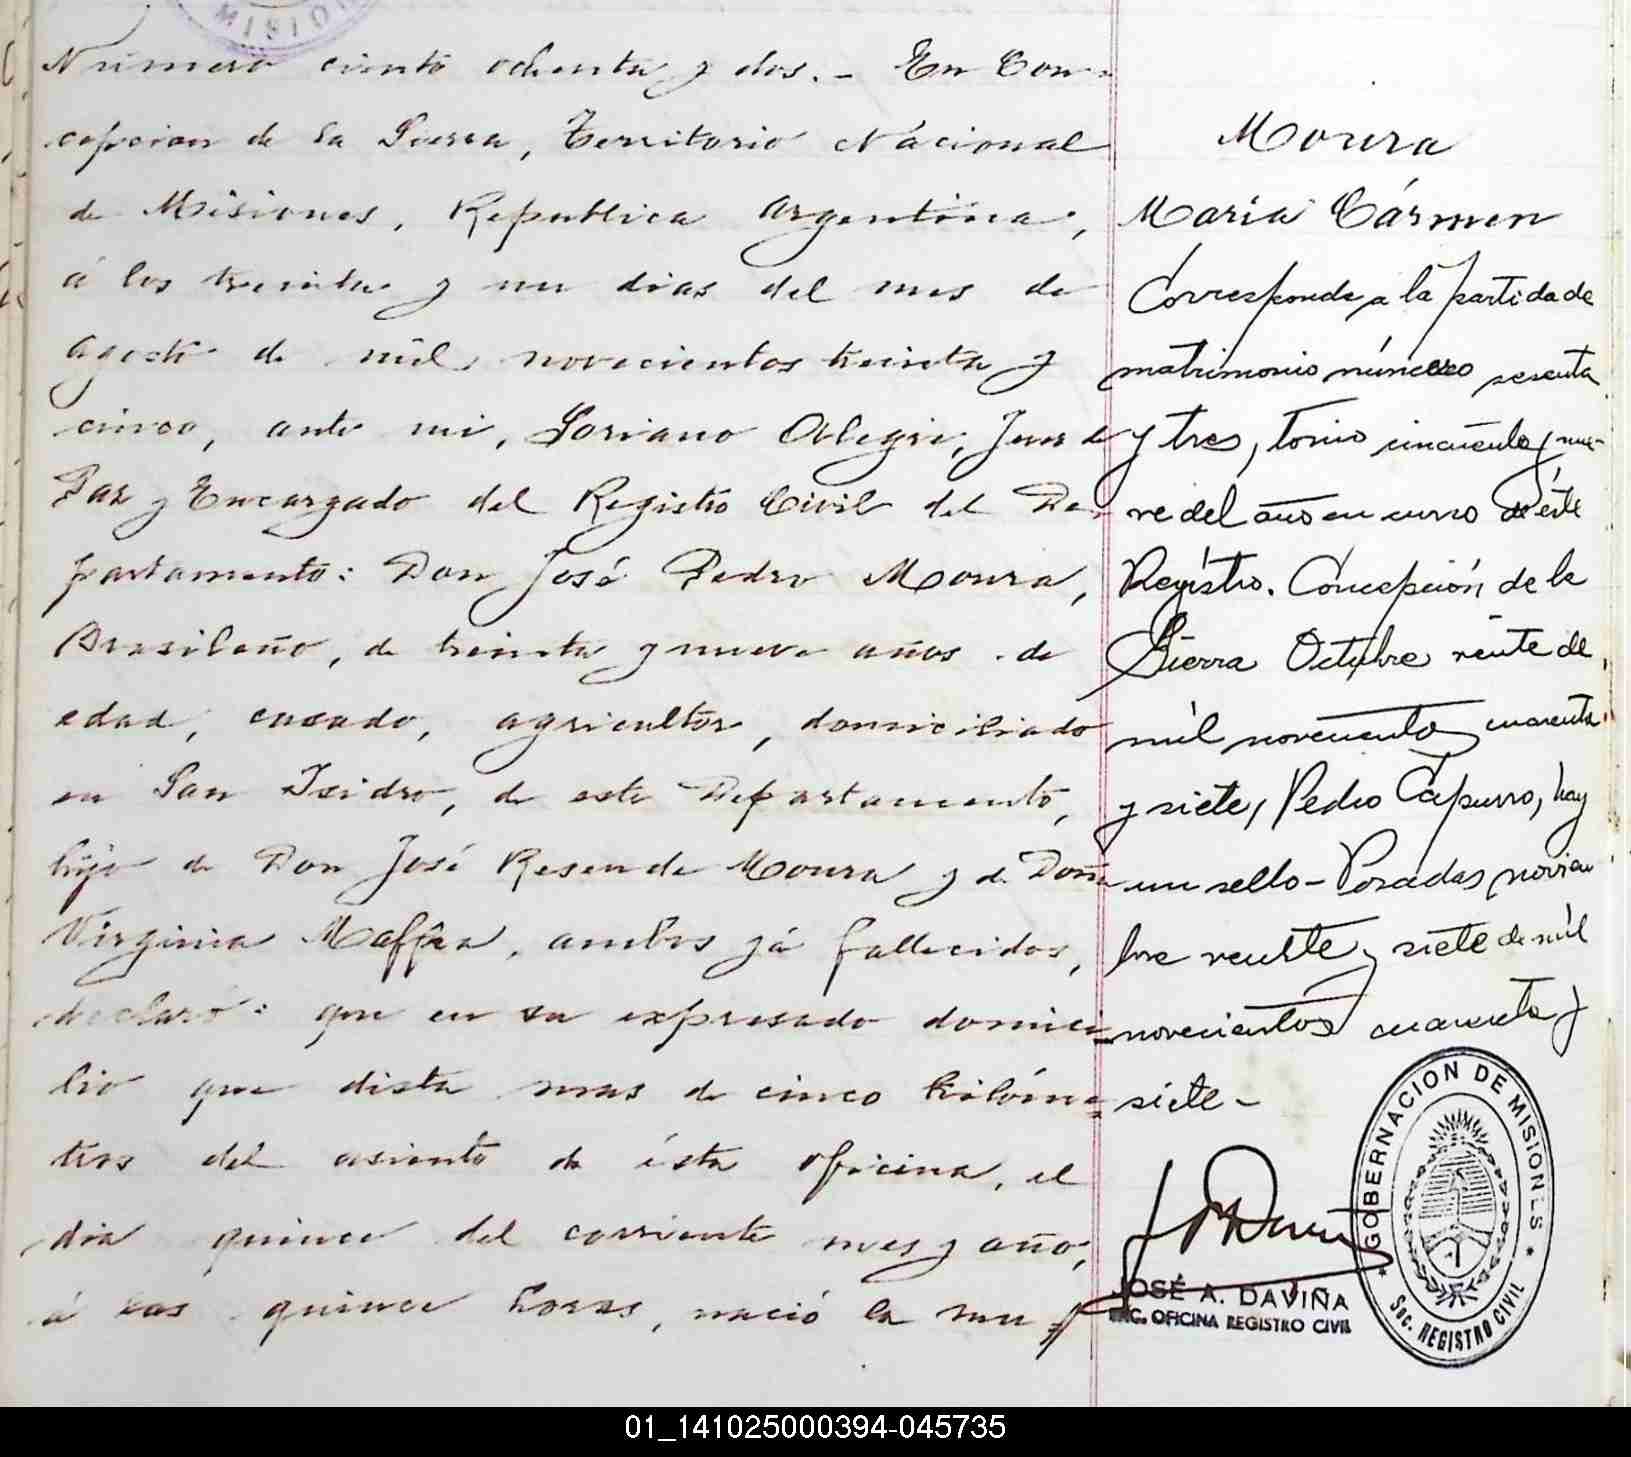 MISION
Número ciento ochenta y dos. - En Con-
cepcion de la Sierra, Territorio Nacional
de Misiones, Republica Argentina,
á los treinta y un dias del mes de
agosto de mil novecientos treinta y
cinco, ante mi, Soriano Alegre, Juez de
Paz y Encargado del Registro Civil del De-
partamento: Don José Pedro Moura,
Brasileño, de treinta y nueve años de
edad, casado, agricultor, domiciliado
en San Isidro, de este Departamento,
hijo de Don José Resende Moura y de Doña
Virginia Maffra, ambos yá fallecidos,
declaró: que en su expresado domici-
lio que dista mas de cinco kilóme-
tros del asiento de ésta oficina, el
dia quince del corriente mes y año,
á las quince horas, nació la mu
Moura
María Cármen
Corresponde a la partida de
matrimonio número sesenta
y tres, tomo cincuenta y nue-
ve del año en curso de éste
Registro. Concepción de la
Sierra Octubre veinte de
mil novecientos cuarenta
y siete, Pedro Capurro, hay
un sello - Posadas noviem
bre veinte y siete de mil
novecientos cuarenta y
siete -
JOSÉ A. DAVIÑA
ENC. OFICINA REGISTRO CIVIL
* GOBERNACION DE MISIONES *
Sec. REGISTRO CIVIL
01_141025000394-045735